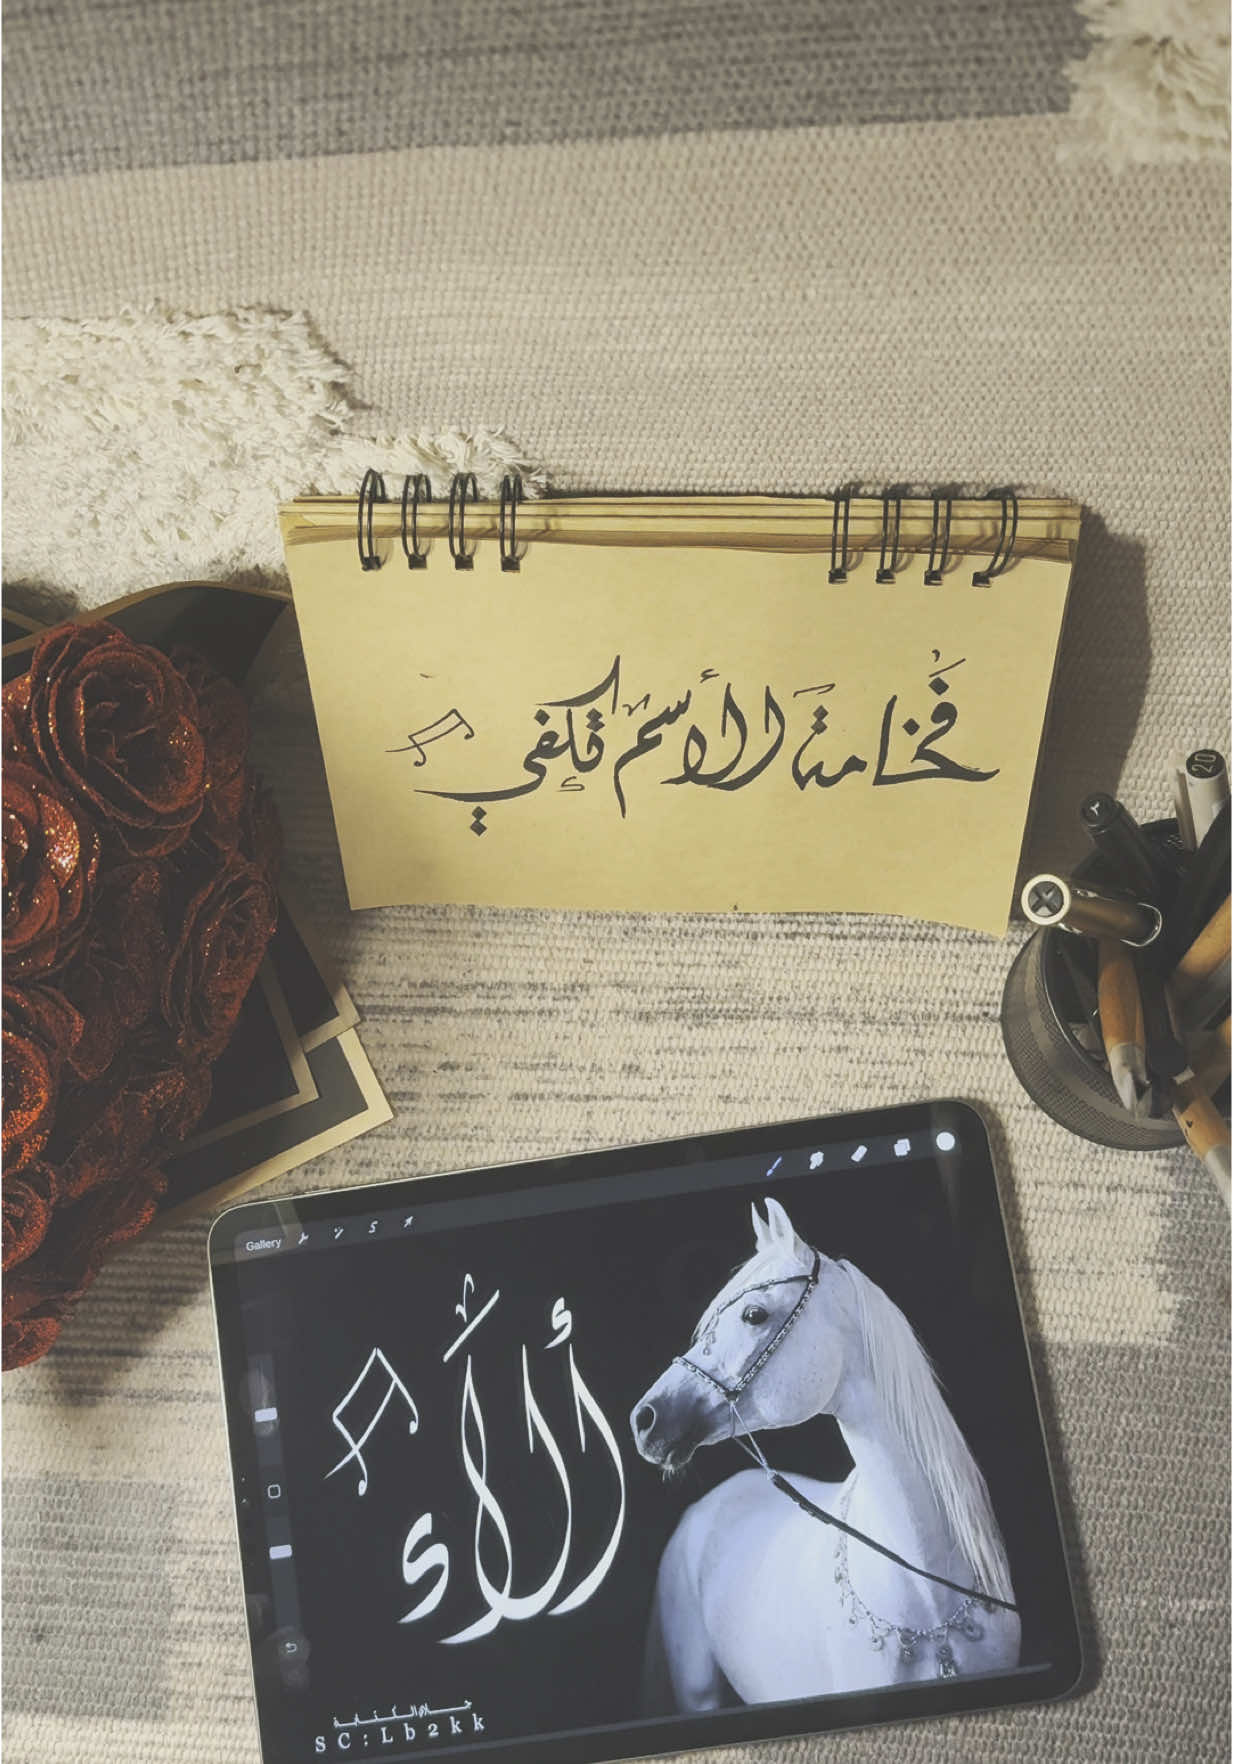 فَخامة الأسم تكفي
20
Gallery
ألآء
SC:Lb2kk